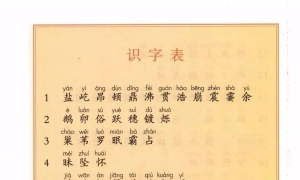 识字表
yán yì áng dùn dǐng fèi guàn hào bēng zhèn shà yú
1 盐 屹 昂 顿 鼎 沸 贯 浩 崩 震 霎 余
é luǎn sú yuè suì dù shuò
2 鹅 卵 俗 跃 穗 镀 烁
cháo wěi luó mián bà zhàn
3 巢 苇 罗 眠 霸 占
mèi zhuì huái
4 昧 坠 怀